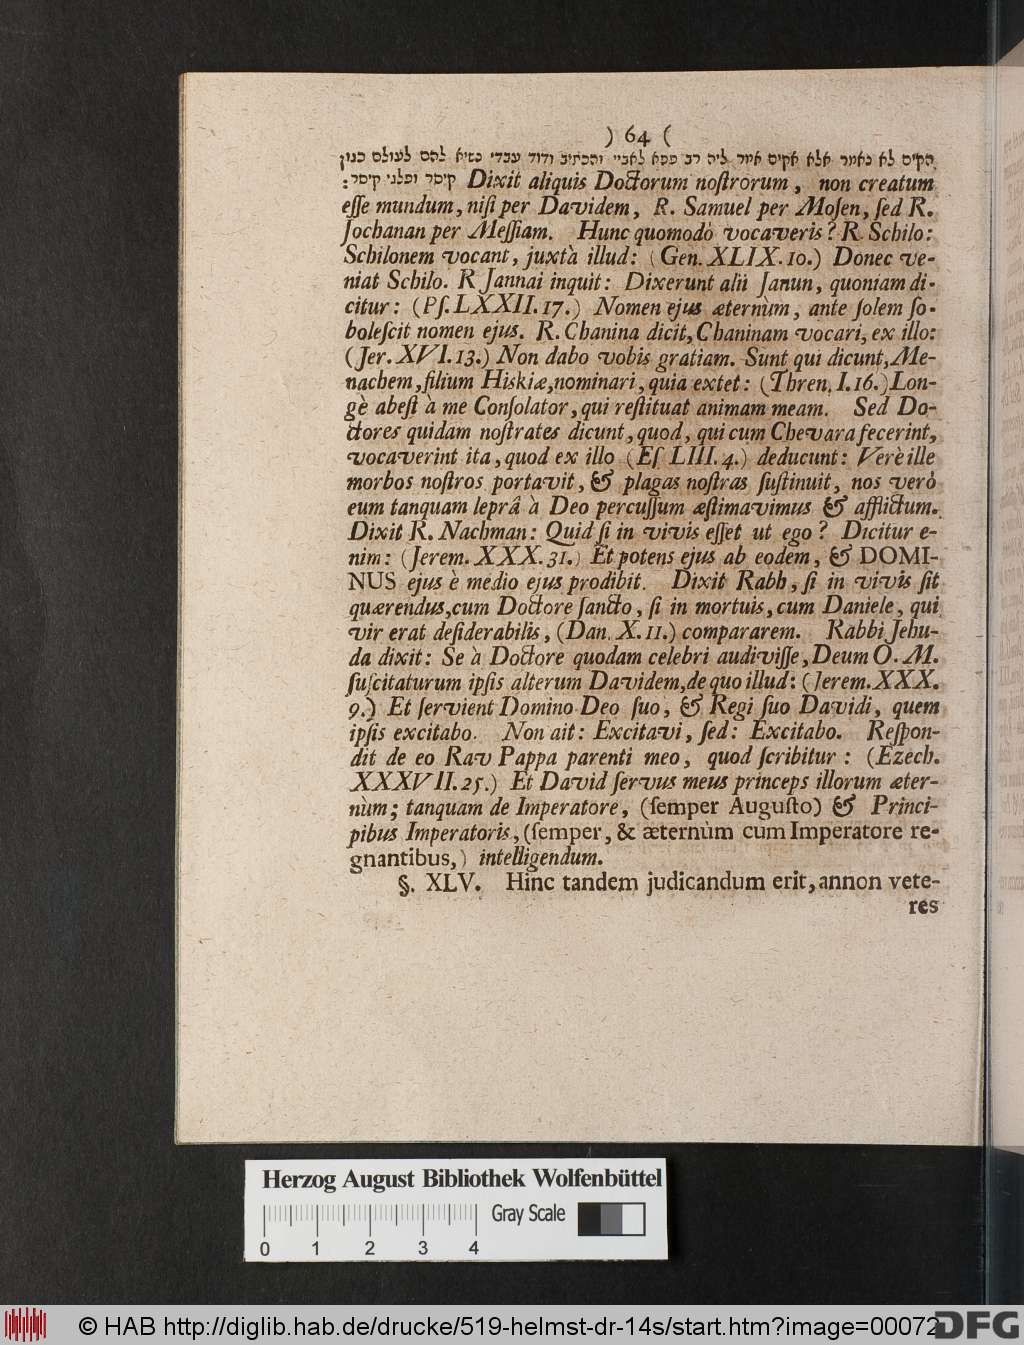 ) 64 (
הקים לא נאמר אלא אקים אמר ליה רב פפא לאביי והכתיב ודוד עבדי נשיא להם לעולם כגון
קיסר ופלגי קיסר: Dixit aliquis Doctorum noſtrorum, non creatum
eſſe mundum, niſi per Davidem, R. Samuel per Moſen, ſed R.
Jochanan per Meſſiam. Hunc quomodò vocaveris? R. Schilo:
Schilonem vocant, juxtà illud: (Gen. XLIX. 10.) Donec ve-
niat Schilo. R Jannai inquit: Dixerunt alii Janun, quoniam di-
citur: (Pſ. LXXII. 17.) Nomen ejus æternùm, ante ſolem ſo-
boleſcit nomen ejus. R. Chanina dicit, Chaninam vocari, ex illo:
(Jer. XVI. 13.) Non dabo vobis gratiam. Sunt qui dicunt, Me-
nachem, filium Hiskiæ, nominari, quia extet: (Thren. I. 16.) Lon-
gè abeſt à me Conſolator, qui reſtituat animam meam. Sed Do-
ctores quidam noſtrates dicunt, quod, qui cum Chevara fecerint,
vocaverint ita, quod ex illo (Eſ LIII. 4.) deducunt: Verè ille
morbos noſtros portavit, & plagas noſtras ſuſtinuit, nos verò
eum tanquam leprâ à Deo percuſſum æſtimavimus & afflictum.
Dixit R. Nachman: Quid ſi in vivis eſſet ut ego? Dicitur e-
nim: (Jerem. XXX. 31.) Et potens ejus ab eodem, & DOMI-
NUS ejus è medio ejus prodibit. Dixit Rabh, ſi in vivis ſit
quærendus, cum Doctore ſancto, ſi in mortuis, cum Daniele, qui
vir erat deſiderabilis, (Dan. X. 11.) compararem. Rabbi Jehu-
da dixit: Se à Doctore quodam celebri audiviſſe, Deum O. M.
ſuſcitaturum ipſis alterum Davidem, de quo illud: (Jerem. XXX.
9.) Et ſervient Domino Deo ſuo, & Regi ſuo Davidi, quem
ipſis excitabo. Non ait: Excitavi, ſed: Excitabo. Reſpon-
dit de eo Rav Pappa parenti meo, quod ſcribitur: (Ezech.
XXXVII. 25.) Et David ſervus meus princeps illorum æter-
nùm; tanquam de Imperatore, (ſemper Auguſto) & Princi-
pibus Imperatoris, (ſemper, & æternùm cum Imperatore re-
gnantibus,) intelligendum.
§. XLV. Hinc tandem judicandum erit, annon vete-
res
Herzog August Bibliothek Wolfenbüttel
Gray Scale
0 1 2 3 4
© HAB http://diglib.hab.de/drucke/519-helmst-dr-14s/start.htm?image=00072
DFG